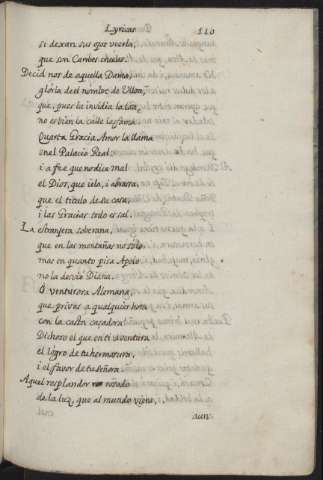 Lyricas 110
si dexan sus ojos verla,
que son Caribes cielos.
Decid nos de aquella Dama,
gloria de el nombre de Ullon,
que, pues la invidia la loa,
no es bien la calle la fama.
Quarta Gracia Amor la llama
en el Palacio Real:
i a fee que no dice mal
el Dios, que iela, i abrasa,
que el titulo de su casa,
i las Gracias todo es sal.
La estranjera soberana,
que en las montañas no solo,
mas en quanto pisa Apolo
no la desvió Diana.
O venturosa Alemana,
que privas a qualquier hora
con la casta cazadora
Dichoso el que en ti aventura
el logro de tu hermosura,
i el favor de tu Señora.
Aquel resplandor rosado
de la luz, que al mundo viene,
aun